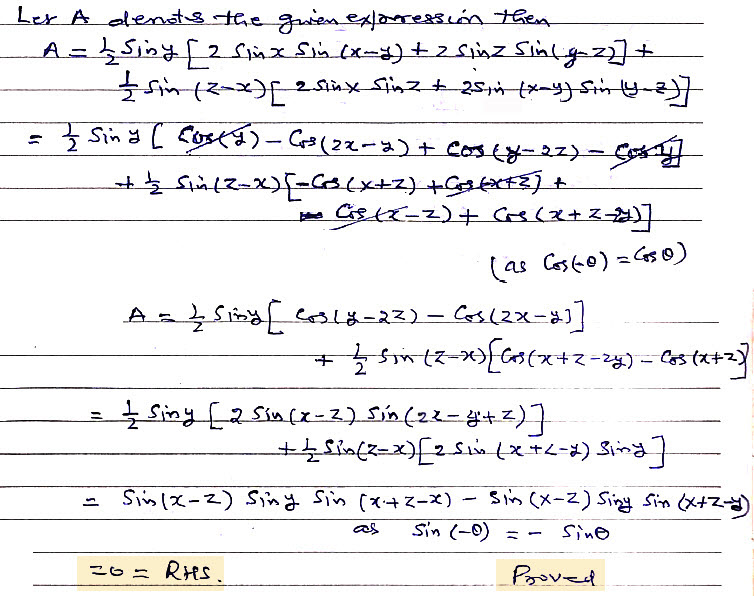 Let A denots the given expression then
A = 1/2 Sin y [ 2 Sin x Sin (x-y) + 2 Sin z Sin (y-z)] +
1/2 Sin (z-x) [ 2 Sin x Sin z + 2 Sin (x-y) Sin (y-z)]
= 1/2 Sin y [ Cos(y) - Cos (2x-y) + Cos (y-2z) - Cos y]
+ 1/2 Sin (z-x) [-Cos (x+z) + Cos (x+z) +
Cos (x-z) + Cos (x+z-2y)]
(as Cos(-θ) = Cos θ)
A = 1/2 Sin y [ Cos (y-2z) - Cos (2x-y)]
+ 1/2 Sin (z-x) [Cos (x+z-2y) - Cos (x+z)]
= 1/2 Sin y [ 2 Sin (x-z) Sin (2x-y+z)]
+ 1/2 Sin (z-x) [2 Sin (x+z-y) Sin y]
= Sin (x-z) Sin y Sin (x+z-x) - Sin (x-z) Sin y Sin (x+z-y)
as Sin (-θ) = - Sin θ
=0 = RHS. Proved